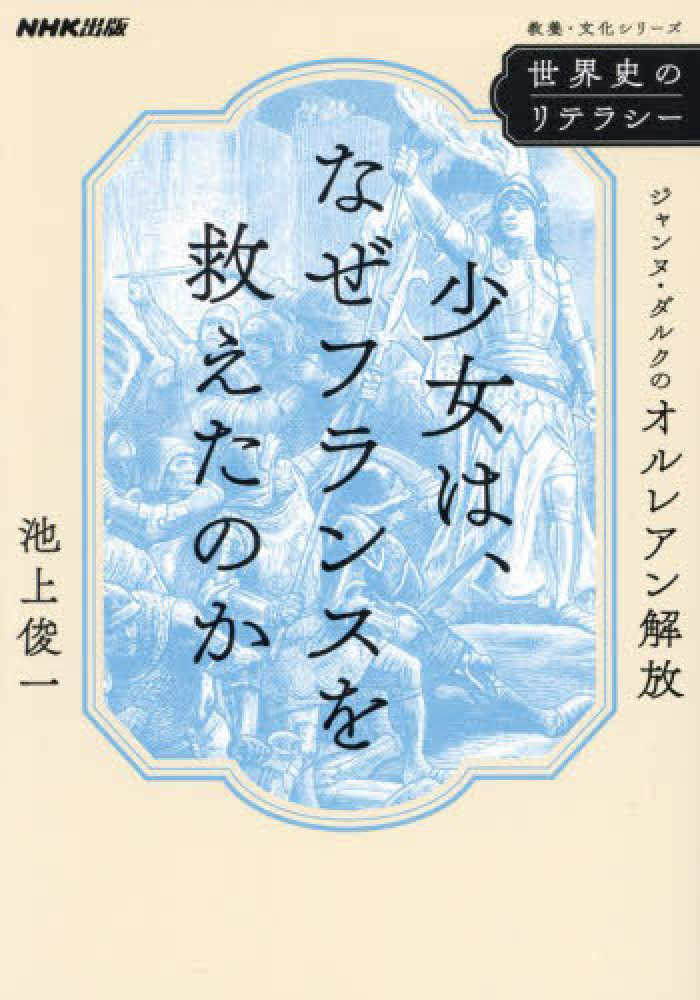 NHK出版
教養・文化シリーズ
世界史の
リテラシー
ジャンヌ・ダルクのオルレアン解放
少女は、
なぜフランスを
救えたのか
池上俊一